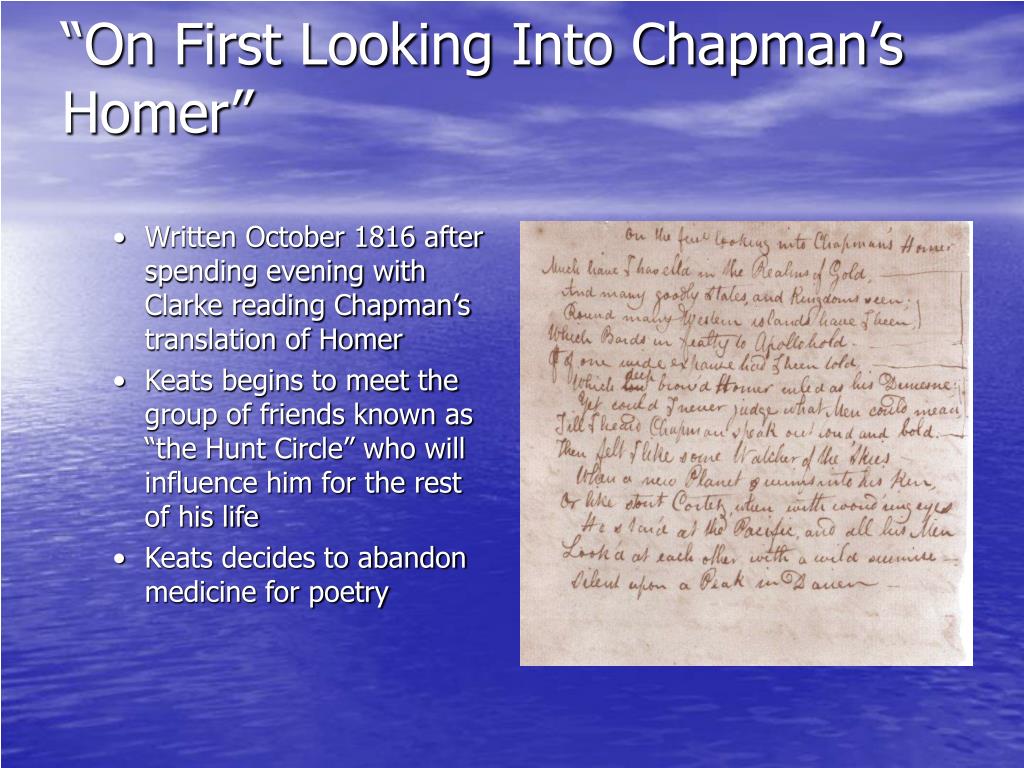 “On First Looking Into Chapman’s
Homer”
• Written October 1816 after
spending evening with
Clarke reading Chapman’s
translation of Homer
• Keats begins to meet the
group of friends known as
“the Hunt Circle” who will
influence him for the rest
of his life
• Keats decides to abandon
medicine for poetry
On the first looking into Chapman's Homer
Much have I travell'd in the Realms of Gold,
And many goodly States, and Kingdoms seen;
Round many Western islands have I been,
Which Bards in fealty to Apollo hold.
Of one wide expanse had I been told,
Which deep brow'd Homer ruled as his Demesne:
Yet could I never judge what Men could mean,
Till I heard Chapman speak out loud and bold.
Then felt I like some Watcher of the Skies
When a new Planet swims into his Ken,
Or like stout Cortez, when with wond'ring eyes
He star'd at the Pacific, and all his Men
Look'd at each other with a wild surmise
Silent upon a Peak in Darien